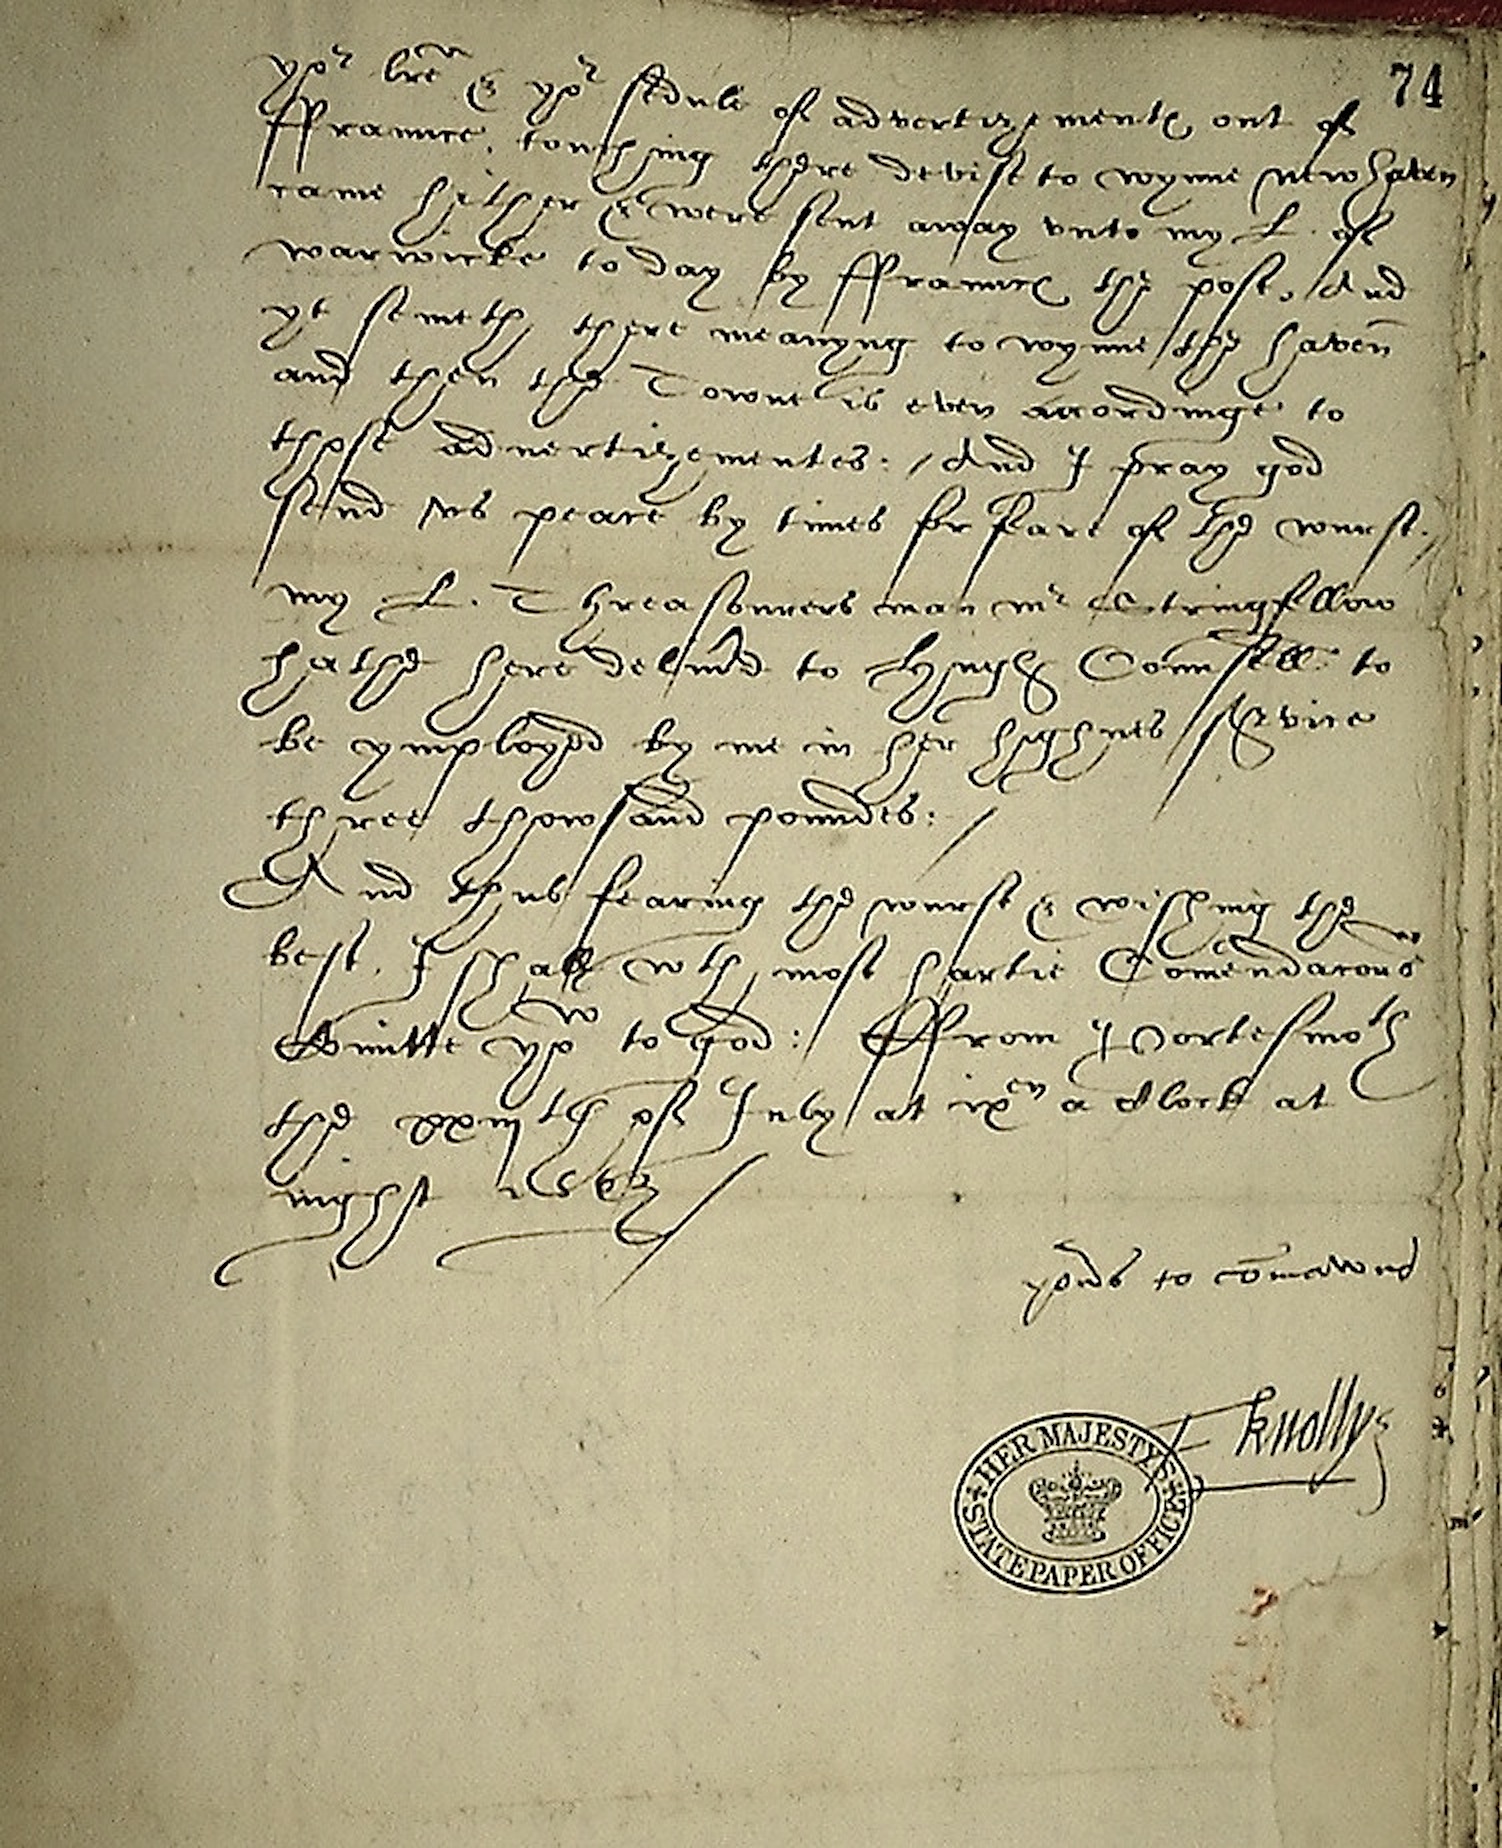 74
yor lre & yor sedule of advertizementes out of
ffraunce, touching there devise to wynne newhaven
came hither & were sent away unto my L. of
warwicke to day by ffraunces the post, And
yt semeth, there meanyng to wynne the haven
and then the Towne is even accordinge to
those advertizementes: / And I pray god
send us peace by times for feare of the wurst. //
my L. Threasourers man mr Stringfellow
hathe here delivrd to Hughe Counsell to
be ymployed by me in her highnes service
three thowsand poundes: /
And thus fearing the wurst & wishing the
best, I shall wth most hartie Comendacons
Comitte yow to god: ffrom Portesmoth
the xxiijth of July at ixen a clock at
night 1563 /
yours to comawnd
F knollys
HER MAJESTY'S
STATE PAPER OFFICE